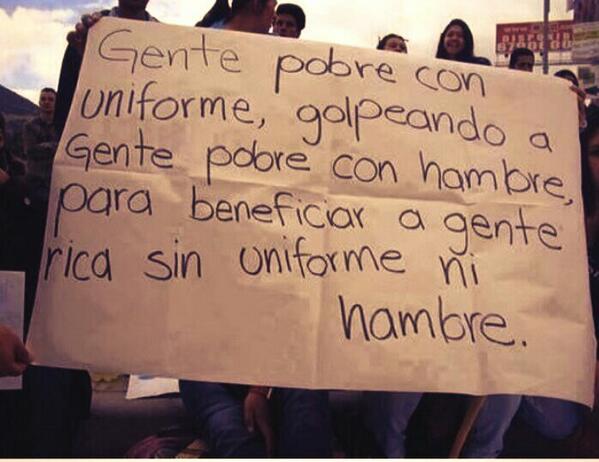 Gente pobre con
uniforme, golpeando a
Gente pobre con hambre,
para beneficiar a gente
rica sin uniforme ni
hambre.